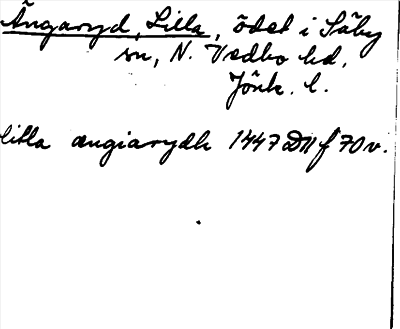 Ängaryd, Lilla, ödet i Säby
sn, N. Vedbo hd,
Jönk. l.
litla ængiarydh 1447 D11 f 70 v.